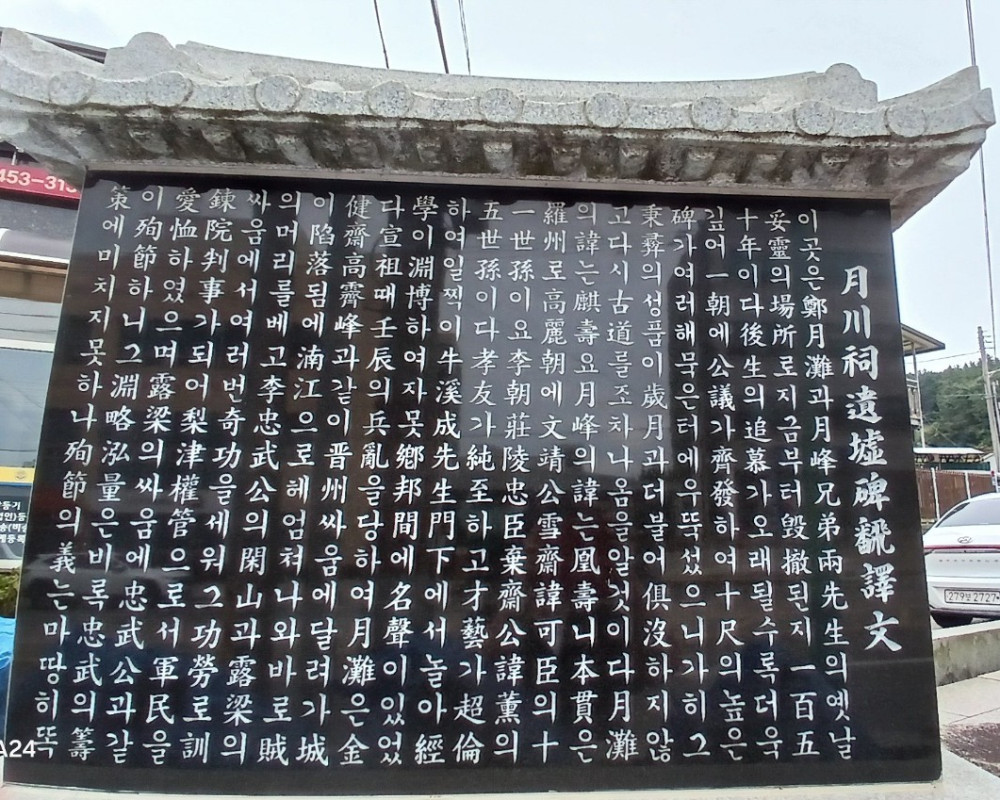 月川祠遺墟碑飜譯文
이곳은鄭月灘과月峰兄弟兩先生의옛날
妥靈의場所로지금부터毁撤된지一百五
十年이다後生의追慕가오래될수록더욱
깊어一朝에公議가齊發하여十尺의높은
碑가여러해묵은터에우뚝섰으니가히그
秉彛의성품이歲月과더불어俱沒하지않
고다시古道를조차나옴을알것이다月灘
의諱는麒壽요月峰의諱는凰壽니本貫은
羅州로高麗朝에文靖公雪齋諱可臣의十
一世孫이요李朝莊陵忠臣棄齋公諱薰의
五世孫이다孝友가純至하고才藝가超倫
하여일찍이牛溪成先生門下에서놀아經
學이淵博하여자못鄕邦間에名聲이있었
다宣祖때壬辰의兵亂을당하여月灘은金
健齋高霽峰과같이晋州싸움에달려가城
이陷落됨에湳江으로헤엄쳐나와바로賊
의머리를베고李忠武公의閑山과露梁의
싸움에서여러번奇功을세워그功勞로訓
鍊院判事가되어梨津權管으로서軍民을
愛恤하였으며露梁의싸움에忠武公과같
이殉節하니그淵略泓量은비록忠武의籌
策에미치지못하나殉節의義는마땅히뚝
453-31
A24